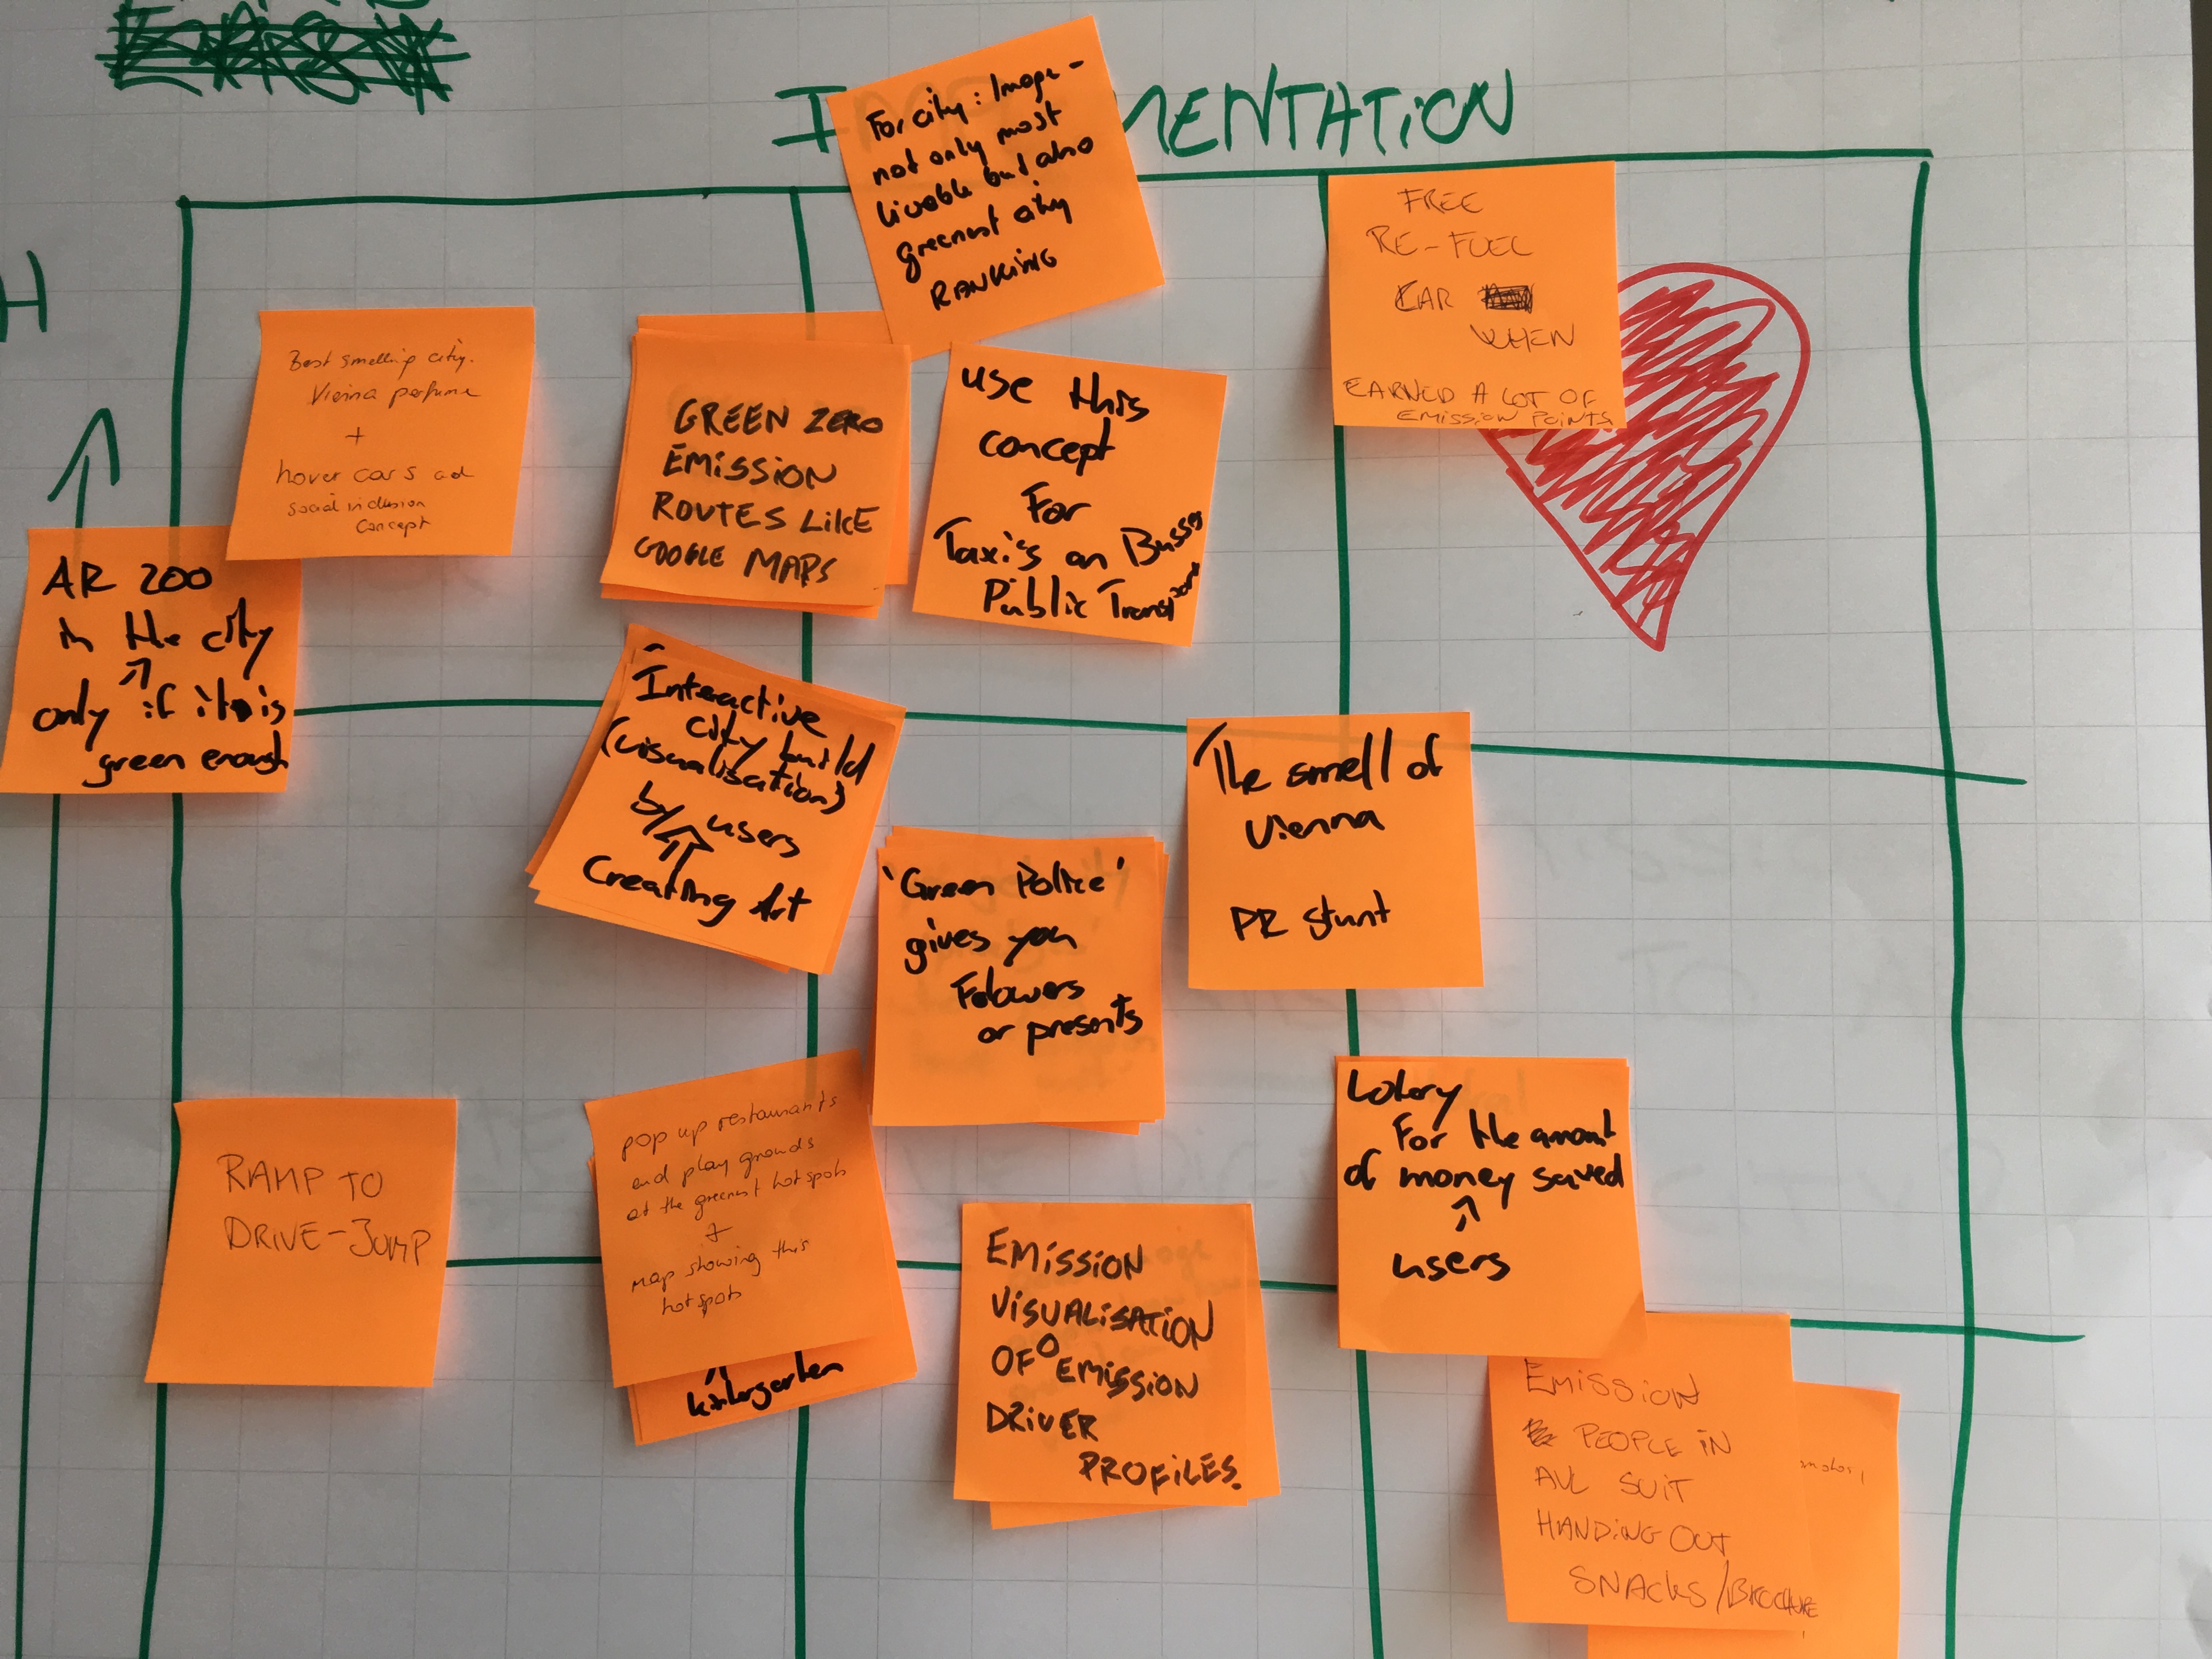 I MENTATION
H
For city: Image -
not only most
livable but also
greenest city
RANKING
FREE
RE-FUEL
CAR
WHEN
EARNED A LOT OF
EMISSION POINTS
Best smelling city.
Vienna perfume
+
hover cars ad
social inclusion
concept
GREEN ZERO
EMISSION
ROUTES LIKE
GOOGLE MAPS
use this
concept
For
Taxi's on Busses
Public Transport
AR ZOO
in the city
only if it is
green enough
Interactive
city build
(visualisation)
by users
Creating Art
The smell of
Vienna
PR stunt
'Green Police'
gives you
Folowers
or presents
RAMP TO
DRIVE-JUMP
pop up restaurants
and play grounds
at the greenest hot spots
+
map showing this
hot spots
kindergarten
Lotery
For the amount
of money saved
users
EMISSION
VISUALISATION
OF EMISSION
DRIVER
PROFILES.
EMISSION
PEOPLE IN
AVL SUIT
HANDING OUT
SNACKS/BROCHURE